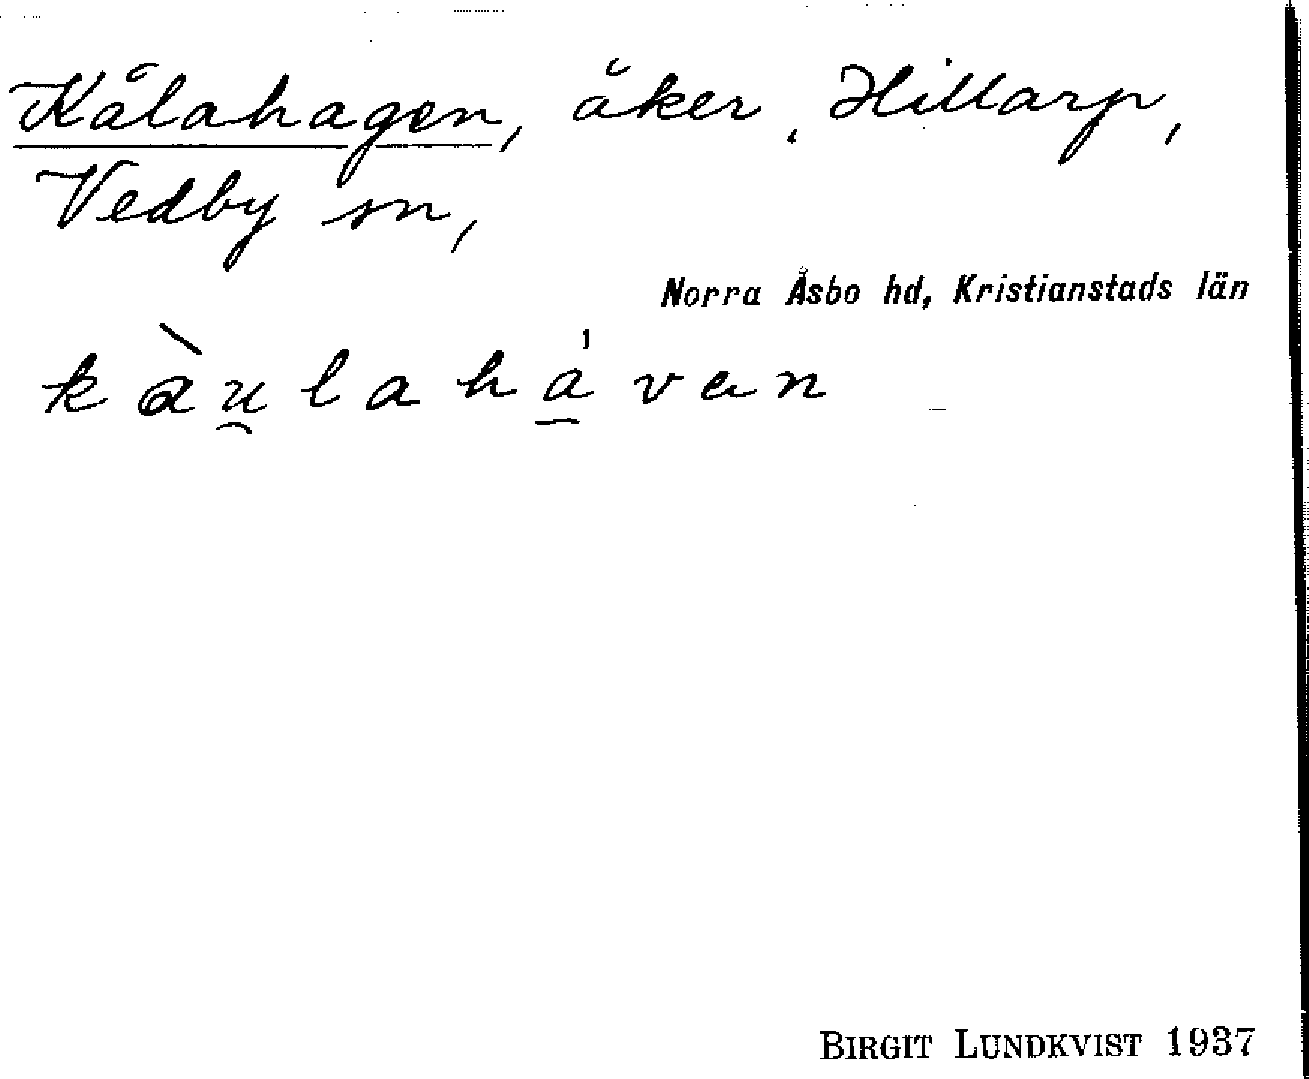 Kålahagen, åker, Hillarp,
Vedby sn,
Norra Åsbo hd, Kristianstads län
kàu̯lahá̱van
BIRGIT LUNDKVIST 1937